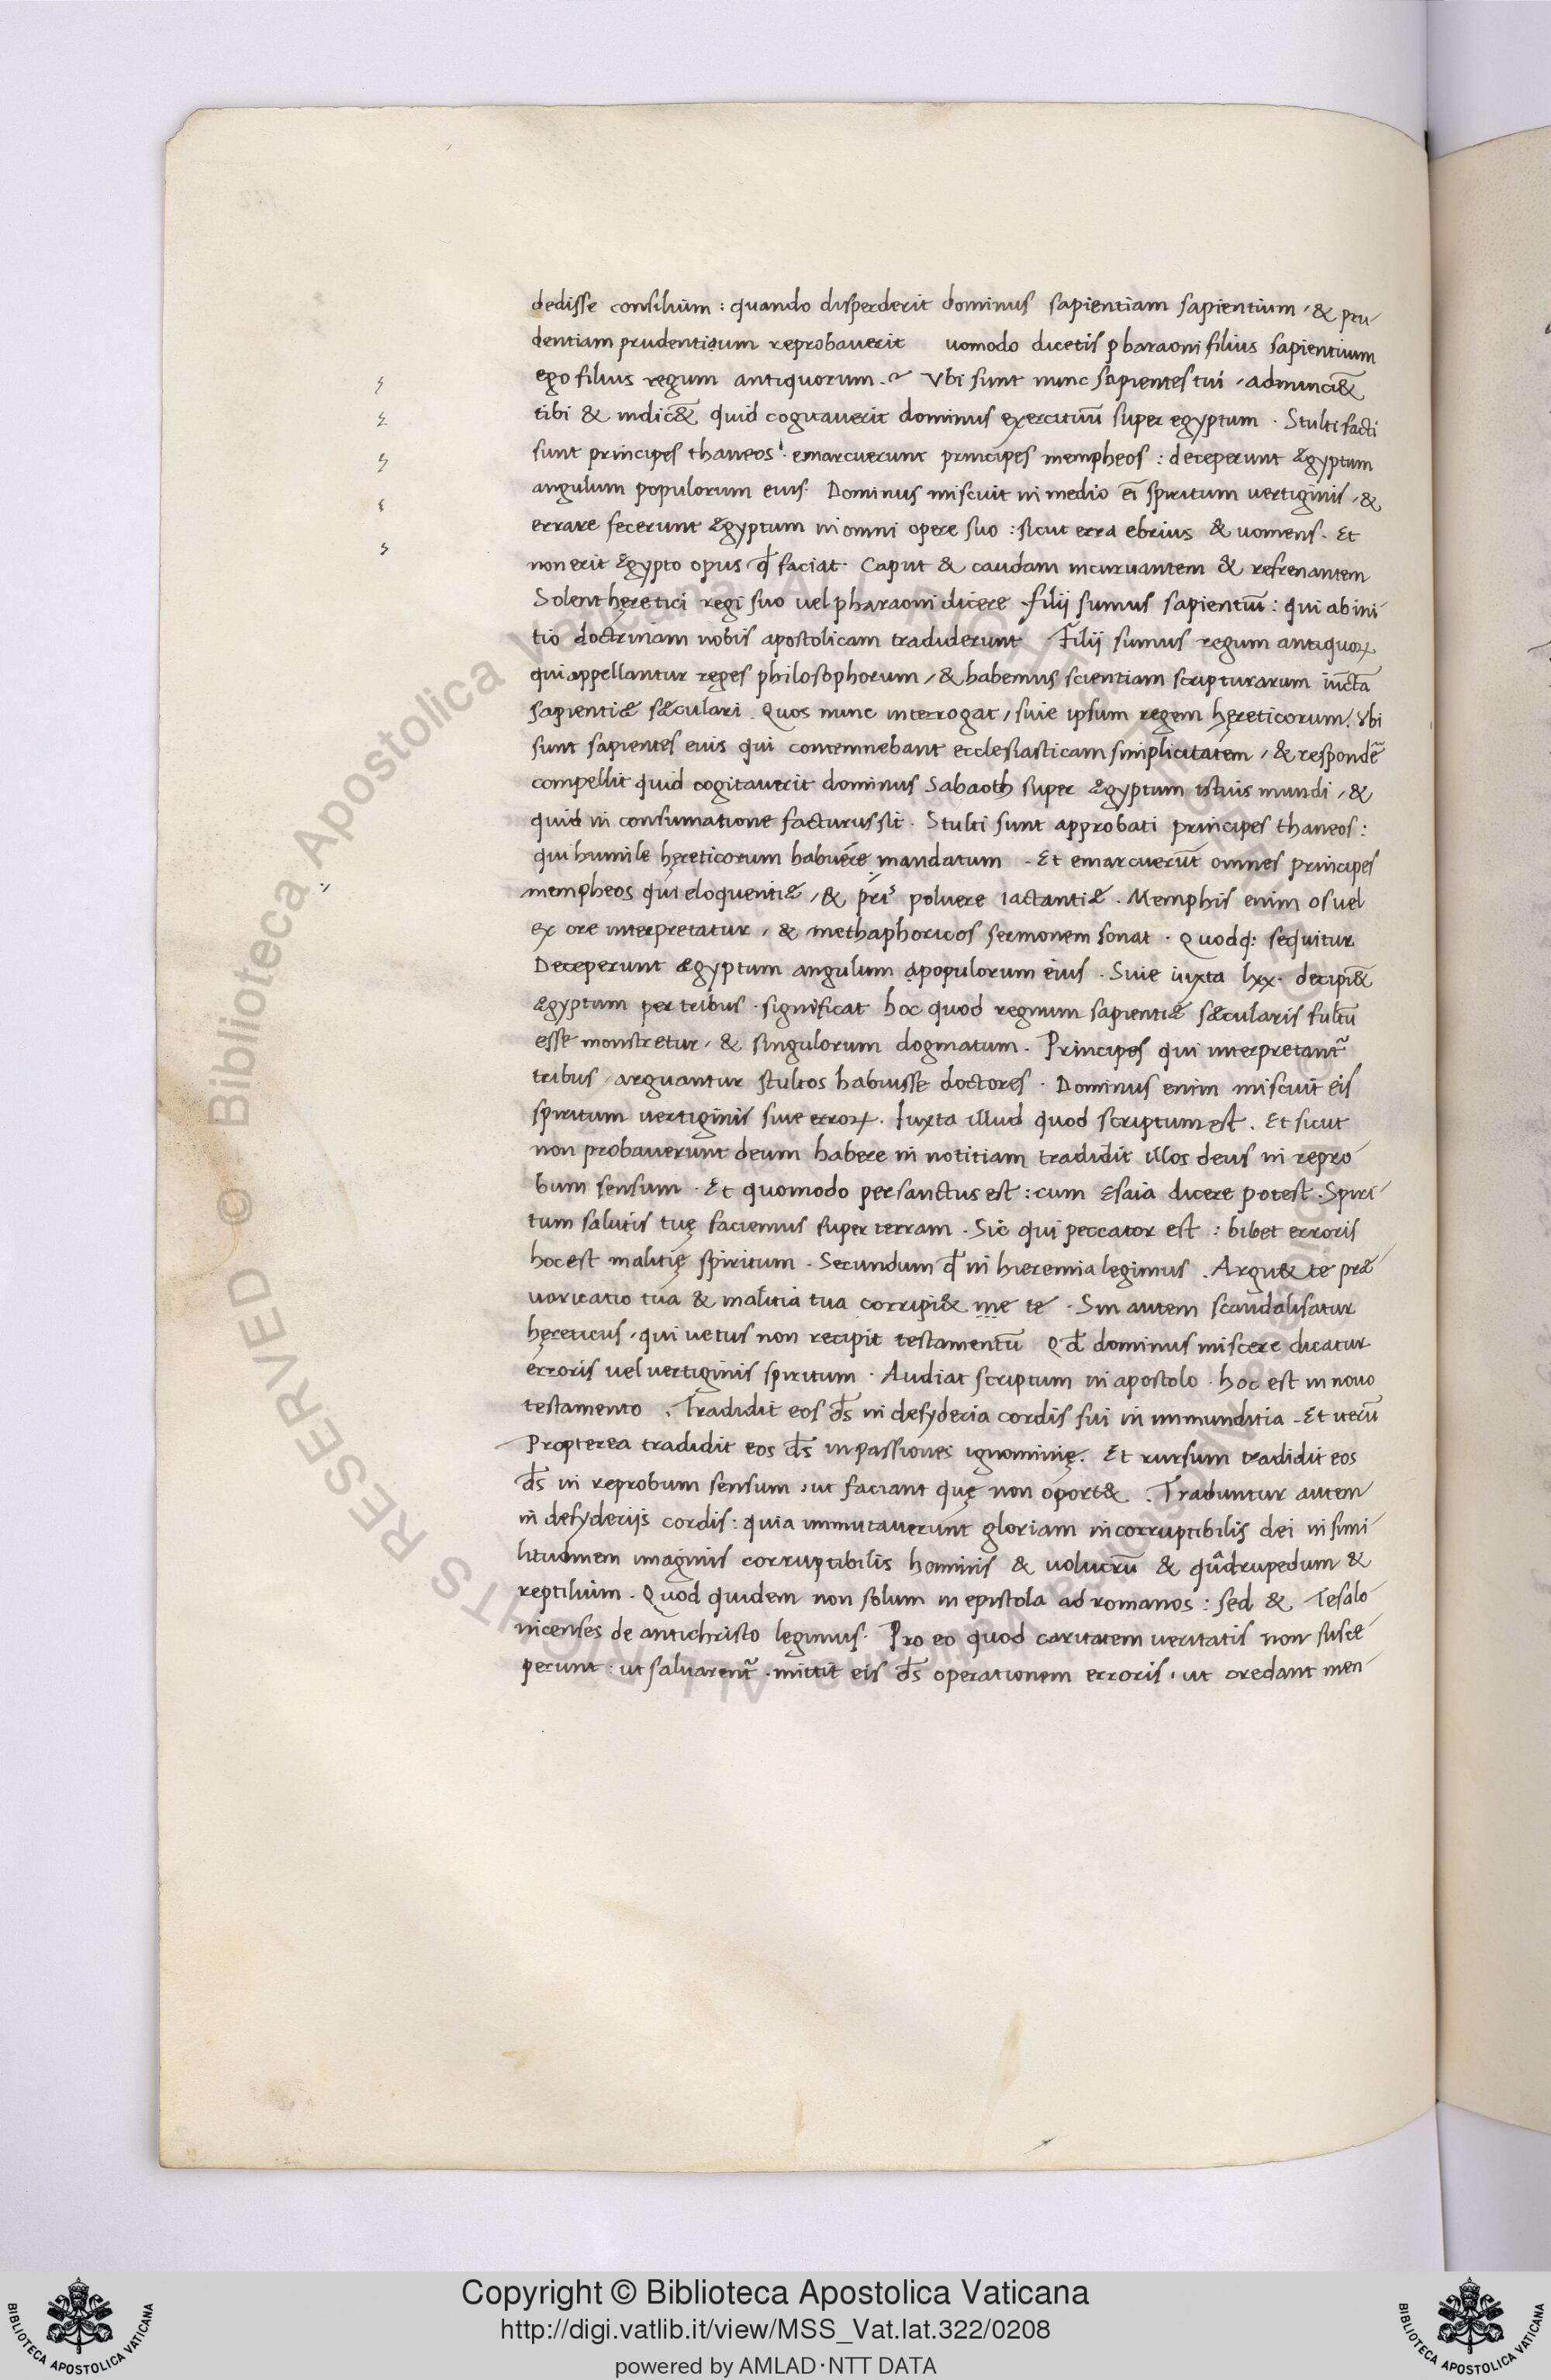 dedisse consilium : quando disperderit dominus sapientiam sapientium / & pru-
dentiam prudentium reprobauerit uomodo dicetis pharaoni filius sapientium
ego filius regum antiquorum. Vbi sunt nunc sapientes tui / adnunci&̄
tibi & indic&̄ quid cogitauerit dominus exercituū super egyptum . Stulti facti
sunt principes thaneos . emarcuerunt principes mempheos : deceperunt ægyptum
angulum populorum eius . Dominus miscuit in medio eī spiritum uertiginis / &
errare fecerunt ægyptum in omni opere suo : sicut erra ebrius & uomens . Et
non erit ægypto opus qđ faciat . Caput & caudam incuruantem & refrenantem
Solent hęretici regi suo uel pharaoni dicere filij sumus sapientiū : qui ab ini-
tio doctrinam nobis apostolicam tradiderunt Filij sumus regum antiquoꝝ
qui appellantur reges philosophorum / & habemus scientiam scripturarum iūcta
sapientiæ sæculari . Quos nunc interrogat / siue ipsum regem hęreticorum . Vbi
sunt sapientes euis qui contemnebant ecclesiasticam simplicitatem / & respondē
compellit quid cogitauerit dominus Sabaoth super ægyptum istius mundi / &
quid in consumatione facturus sit . Stulti sunt approbati principes thaneos :
qui humile hęreticorum habuére mandatum . Et emarcuerūt omnes principes
mempheos qui eloquentiæ / & poluere iactantiæ . Memphis enim os uel
ex ore interpretatur / & methaphoricos sermonem sonat . Quodq: sequitur
Deceperunt ægyptum angulum apopulorum eius . Siue iuxta lxx . decipi&̄
ægyptum per tribus . significat hoc quod regnum sapientiæ sæcularis fultū
esse monstretur / & singulorum dogmatum . Principes qui interpretant᷑
tribus / arguantur stultos habuisse doctores . Dominus enim miscuit eis
spiritum uertiginis siue erroꝝ . Iuxta illud quod scriptum est . Et sicut
non probauerunt deum habere in notitiam tradidit illos deus in repro-
bum sensum . Et quomodo per sanctus est : cum Esaia dicere potest . Spiri-
tum salutis tuę faciemus super terram . Sic qui peccator est : bibet erroris
hoc est malitię spiritum . Secundum qđ in hieremia legimus . Argu& te præ-
uaricatio tua & malitia tua corripi& me te . Sin autem scandalisatur
hęreticus / qui uetus non recipit testamentū Qđ dominus miscere dicatur
erroris uel uertiginis spiritum . Audiat scriptum in apostolo . hoc est in nouo
testamento . Tradidit eos d̄s in desyderia cordis sui in immunditia . Et uerū
Propterea tradidit eos d̄s in passiones ignominię . Et rursum tradidit eos
d̄s in reprobum sensum , ut faciant quę non oport& . Traduntur autem
in desyderijs cordis : quia immutauerunt gloriam incorruptibilis dei in simi-
litudinem imaginis corruptibilis hominis & uolucrū & quadrupedum &
reptilium . Quod quidem non solum in epistola ad romanos : sed & Tesalo-
nicenses de antichristo legimus . Pro eo quod caritatem ueritatis non susce-
perunt . ut saluarent᷑ . mittit eis d̄s operationem erroris , ut credant men-
Copyright © Biblioteca Apostolica Vaticana
http://digi.vatlib.it/view/MSS_Vat.lat.322/0208
powered by AMLAD·NTT DATA